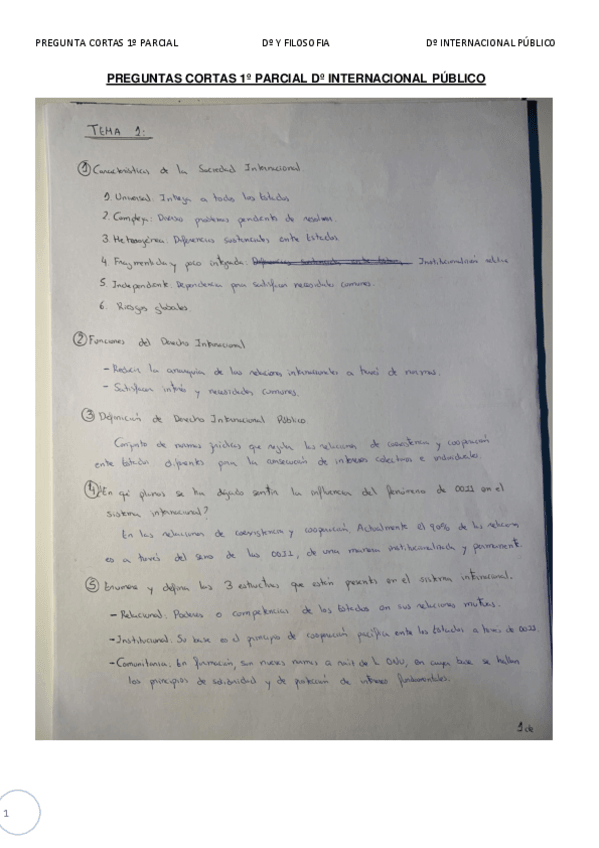 PREGUNTA CORTAS 1º PARCIAL Dº Y FILOSOFIA Dº INTERNACIONAL PÚBLICO
PREGUNTAS CORTAS 1º PARCIAL Dº INTERNACIONAL PÚBLICO
TEMA 1:
① Características de la Sociedad Internacional.
1. Universal: Integra a todos los Estados
2. Compleja: Diversos problemas pendientes de resolver.
3. Heterogénea: Diferencias sustanciales entre Estados
4. Fragmentada y poco integrada: Institucionalización
5. Dependencia para satisfacer necesidades comunes.
6. Riesgos globales.
② Funciones del Derecho Internacional
- la de las relaciones internacionales a través de normas.
- Satisfacer interés y necesidades comunes.
③ Definición de Derecho Internacional Público
Conjunto de normas jurídicas que regulan las relaciones de coexistencia y cooperación
entre Estados diferentes para la consecución de intereses colectivos e individuales.
④ ¿En qué planos se ha dejado sentir la influencia del fenómeno de OOII en el
sistema internacional?
En las relaciones de coexistencia y cooperación. Actualmente el 90% de las relaciones
es a través del seno de las OOII, de una manera institucionalizada y permanente.
⑤ Enumera y defina las 3 estructuras que están presentes en el sistema internacional.
- Relacional: Poderes o competencias de los Estados en sus relaciones mutuas.
- Institucional: Su base es el principio de cooperación pacífica entre los Estados a través de OOII.
- Comunitaria: En formación, son nuevas normas a raíz de la ONU, en cuya base se hallan
los principios de solidaridad y de protección de intereses fundamentales.
1